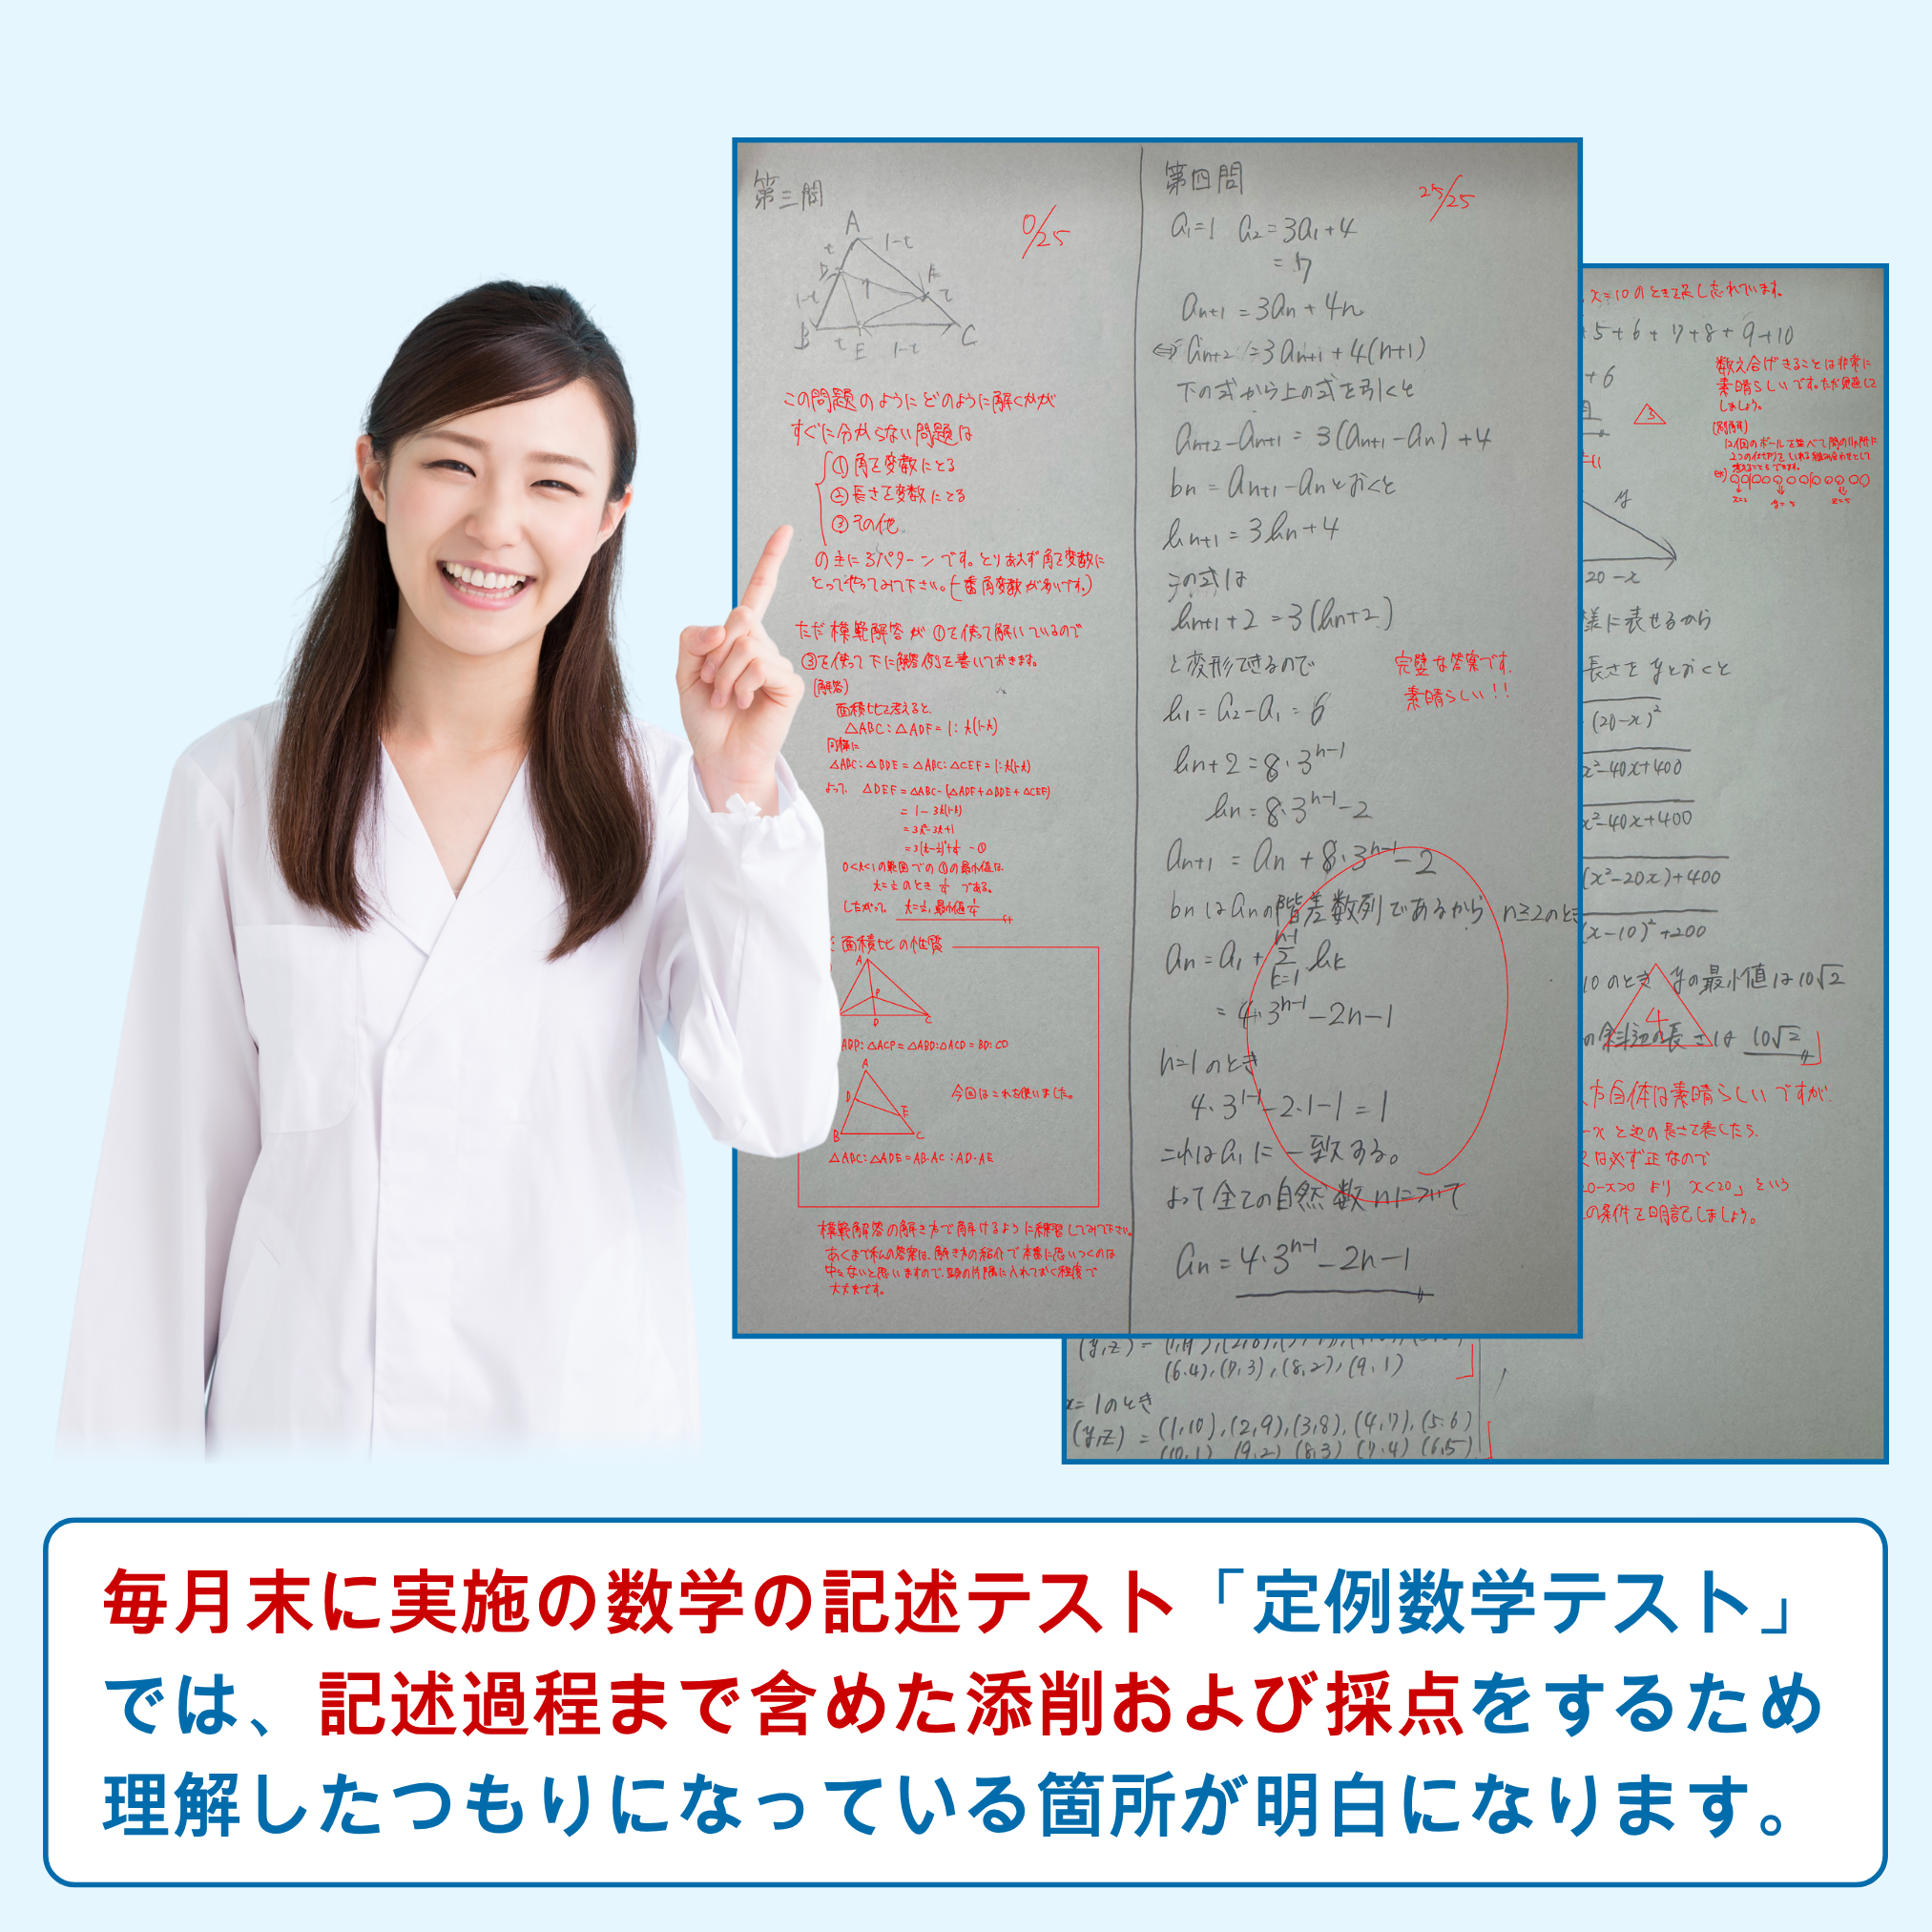 第三問
0/25
A
t
1-t
D
F
1-t
t
B
t
E
1-t
C
この問題のようにどのように解くかが
すぐに分からない問題は
①角を変数にとる
②長さを変数にとる
③その他
の主に3パターンです。とりあえず角を変数に
とってやってみて下さい。(一番角変数が多いです。)
ただ模範解答が①を使って解いているので
③を使って下に解答例を書いておきます。
(解答)
面積比を考えると、
△ABC:△ADF=1:t(1-t)
同様に
△ABC:△BDE=△ABC:△CEF=1:t(1-t)
よって、△DEF=△ABC-(△ADF+△BDE+△CEF)
=1-3t(1-t)
=3t²-3t+1
=3(t-½)²+¼ -①
0<t<1の範囲での①の最小値は
t=½のとき ¼ である。
したがって、t=½, 最小値¼
面積比の性質
A
P
D
C
ABP:△ACP=△ABD:△ACD=BD:CD
A
D
E
B
C
今回はこれを使いました。
△ABC:△ADE=AB・AC:AD・AE
模範解答の解き方で解けるように練習してみて下さい。
あくまで私の答案は、解き方の紹介で本番に思いつくのは
中々ないと思いますので、頭の片隅に入れておく程度で
大丈夫です。
第四問
25/25
a₁=1 a₂=3a₁+4
=7
aₙ₊₁=3aₙ+4n
⇔aₙ₊₂=3aₙ₊₁+4(n+1)
下の式から上の式を引くと
aₙ₊₂-aₙ₊₁=3(aₙ₊₁-aₙ)+4
bₙ=aₙ₊₁-aₙとおくと
bₙ₊₁=3bₙ+4
この式は
bₙ₊₁+2=3(bₙ+2)
と変形できるので
完璧な答案です。
素晴らしい!!
b₁=a₂-a₁=6
bₙ+2=8・3ⁿ⁻¹
bₙ=8・3ⁿ⁻¹-2
aₙ₊₁=aₙ+8・3ⁿ⁻¹-2
bₙはaₙの階差数列であるから n≥2のとき
aₙ=a₁+Σ(k=1, n-1) bₖ
=4・3ⁿ⁻¹-2n-1
n=1のとき
4・3¹⁻¹-2・1-1=1
これはa₁に一致する。
よって全ての自然数nについて
aₙ=4・3ⁿ⁻¹-2n-1
x=10のときを足し忘れています。
+5+6+7+8+9+10
+6
数え合げきることは非常に
素晴らしいです。ただ見直しは
しましょう。
3
(別解)
12個のボールを並べて間の11ヶ所に
2つの仕切りをいれる組み合わせとして
考えることもできます。
y
20-x
様に表せるから
長さをyとおくと
(20-x)²
x²-40x+400
x²-40x+400
(x²-20x)+400
(x-10)²+200
10のとき yの最小値は10√2
4
の斜辺の長さは 10√2
方自体は素晴らしいですが、
-xと辺の長さで表したら、
は必ず正なので
20-x>0 より x<20」という
の条件を明記しましょう。
(6,4),(7,3),(8,2),(9,1)
x=1のとき
(y,z)=(1,10),(2,9),(3,8),(4,7),(5,6)
(10,1) (9,2) (8,3) (7,4) (6,5)
毎月末に実施の数学の記述テスト「定例数学テスト」
では、記述過程まで含めた添削および採点をするため
理解したつもりになっている箇所が明白になります。